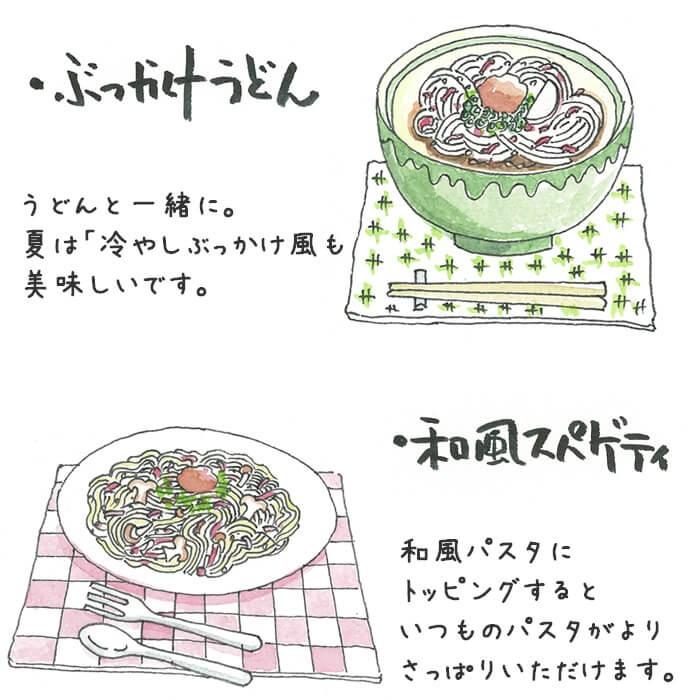 ・ぶっかけうどん
うどんと一緒に。
夏は「冷やしぶっかけ風も
美味しいです。
・和風スパゲティ
和風パスタに
トッピングすると
いつものパスタがより
さっぱりいただけます。